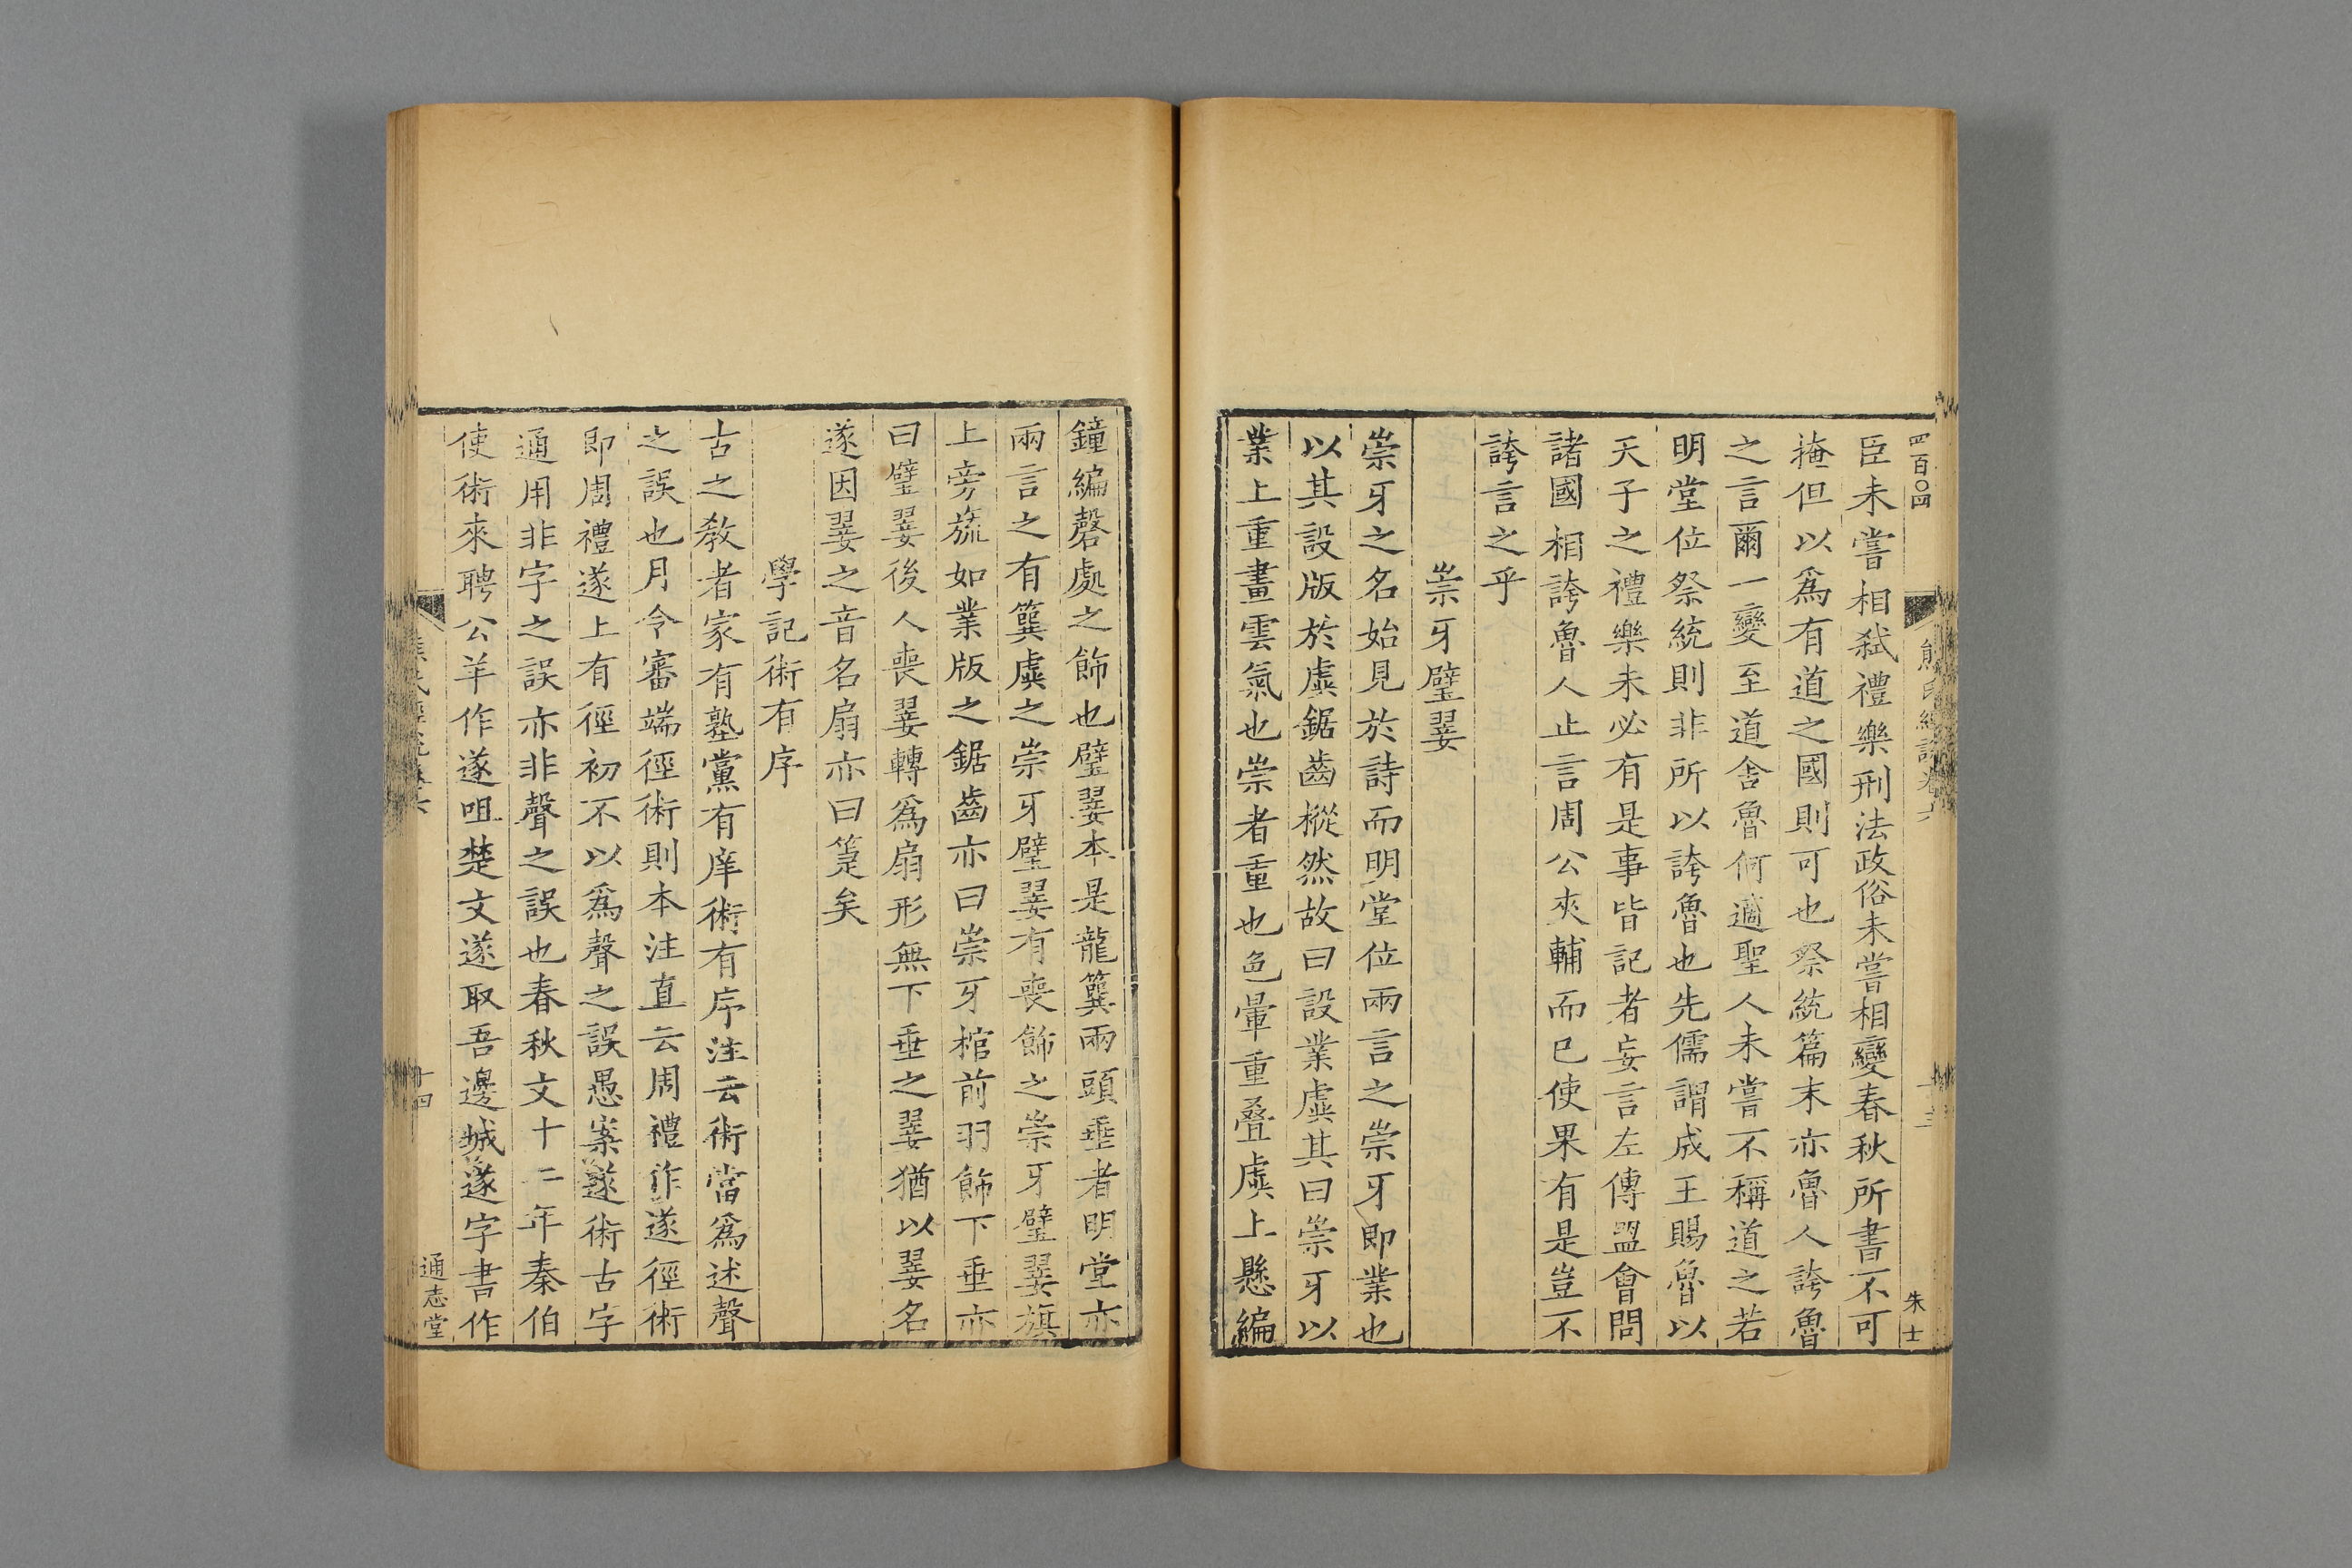 四百〇四
朱士
臣未嘗相弑禮樂刑法政俗未嘗相變春秋所書不可
掩但以爲有道之國則可也祭統篇末亦魯人誇魯
之言爾一變至道舍魯何適聖人未嘗不稱道之若
明堂位祭統則非所以誇魯也先儒謂成王賜魯以
天子之禮樂未必有是事皆記者妄言左傳盟會問
諸國相誇魯人止言周公夾輔而已使果有是豈不
誇言之乎
崇牙璧翣
崇牙之名始見於詩而明堂位兩言之崇牙即業也
以其設版於虡鋸齒樅然故曰設業虡其曰崇牙以
業上重畫雲氣也崇者重也色暈重疊虡上懸編
鐘編磬處之飾也璧翣本是龍簨兩頭垂者明堂亦
兩言之有簨虡之崇牙璧翣有喪飾之崇牙璧翣旗
上旁旒如業版之鋸齒亦曰崇牙棺前羽飾下垂亦
曰璧翣後人喪翣轉爲扇形無下垂之翣猶以翣名
遂因翣之音名扇亦曰箑矣
學記術有序
古之教者家有塾黨有庠術有序注云術當爲述聲
之誤也月令審端徑術則本注直云周禮作遂徑術
即周禮遂上有徑初不以爲聲之誤愚案遂術古字
通用非字之誤亦非聲之誤也春秋文十二年秦伯
使術來聘公羊作遂咀楚文遂取吾邊城遂字書作
十四
通志堂